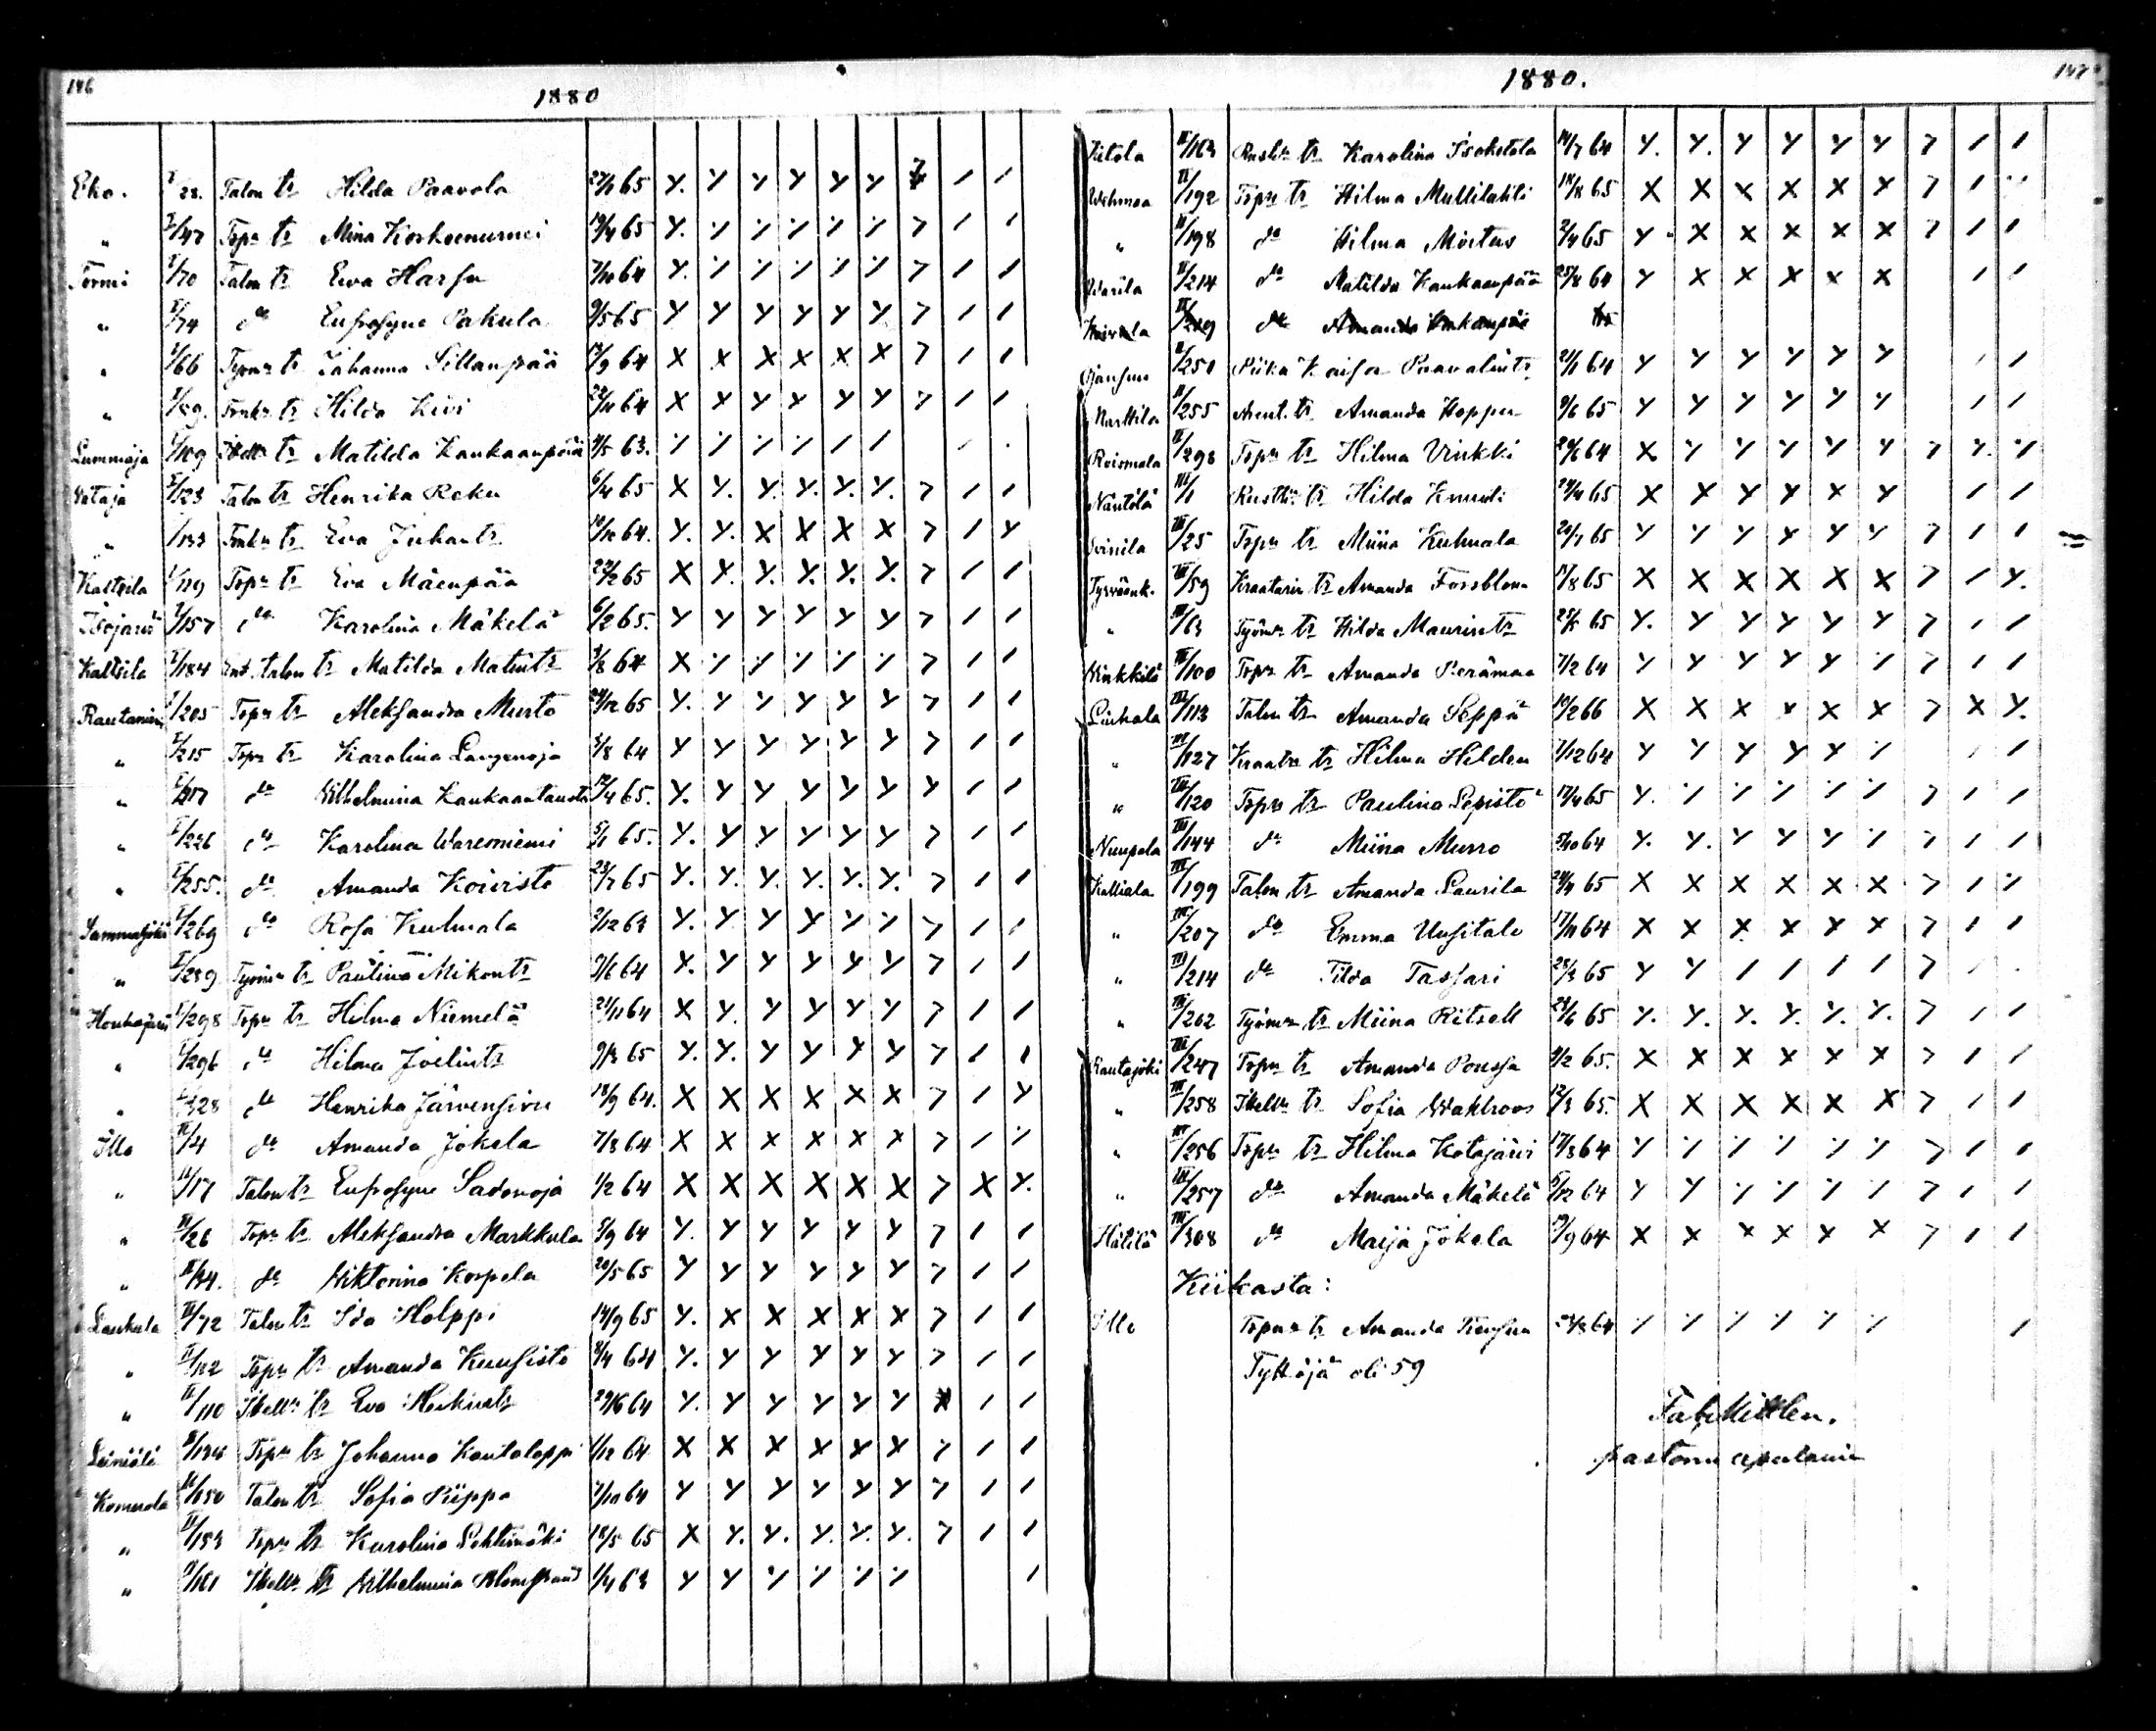 146
1880
Eko. I/28. Talon tr Hilda Paavola 27/1 65 Y. Y Y Y Y Y 7 / /
" I/47 Torp:n tr Mina Koskoenurmi 19/4 65 Y. ٪ ٪ ٪ ٪ ٪ 7 / /
Tormi I/70 Talon tr Eva Harju 7/10 64 Y. ٪ ٪ ٪ ٪ ٪ 7 / /
" I/74 d:o Eufrosyne Pakula 9/5 65 Y Y Y Y Y Y 7 / /
" I/66 Työm:n tr Johanna Sillanpää 12/9 64 X X X X X X 7 / /
" I/89. tr Hilda Kivi 22/11 64 X Y Y Y Y Y 7 / /
Lummaja I/109 Itsell:n tr Matilda Kankaanpää 4/5 63. ٪ ٪ ٪ ٪ / /
Vataja I/123 Talon tr Henrika Reku 6/4 65 X Y. Y. Y. Y. Y. 7 / /
" I/133 tr Eva Juhantr 10/10 64. Y. Y. X X X X 7 / Y
Kaltsila I/119 Torp:n tr Eva Mäenpää 22/2 65 X Y. Y. Y. Y. Y. 7 / /
Isojärvi I/157 d:o Karolina Mäkelä 6/2 65. Y Y Y Y Y Y 7 / /
Kaltsila I/184 Ent. talon tr Matilda Matintr 3/8 64 X ٪ ٪ ٪ ٪ ٪ 7 / /
Rautaniemi I/205 Torp:n tr Aleksandra Musto 24/12 65 Y. Y Y Y Y Y 7 / /
" I/215 Torp:n tr Karolina Laugenoja 5/8 64 Y Y Y Y Y Y 7 / /
" I/217 d:o Wilhelmina Kankaantausta 12/4 65. Y. Y Y Y Y Y 7 / /
" I/226 d:o Karolina Waresniemi 5/1 65. Y. Y Y Y Y Y 7 / /
" I/255. d:o Amanda Koivisto 23/7 65 Y. Y. Y. Y. Y. Y. 7 / /
Sammaljoki I/269 d:o Rosa Kulmala 2/12 63 Y. Y. Y Y Y ٪ 7 / /
" I/289 Työm:n tr Paulina Mikontr 9/6 64 X. Y Y Y Y Y 7 / /
Houhajärvi I/298 Torp:n tr Hilma Niemelä 21/11 64 X Y. Y Y Y Y 7 / /
" I/296 d:o Hilma Joelintr 9/3 65 Y. Y. Y Y Y Y 7 / /
" I/328 d:o Henrika Järvensivu 18/9 64. X X X X X X 7 / Y
Illo II/4 d:o Amanda Jokela 7/3 64 X X X X X X 7 / ٪
" II/17 Talon tr Eufrosyne Sadonoja 1/2 64 X X X X X X 7 X Y.
" II/26 Torp:n tr Aleksandra Markkula 5/9 64 Y. Y Y Y Y Y 7 / /
" II/34. d:o Wiktorina Korpela 20/5 65 Y Y Y Y Y Y 7 / /
Laukula II/72 Talon tr Ida Holppi 14/9 65 Y. X X X X X 7 / /
" II/112 Torp:n tr Amanda Kuusisto 8/4 64 Y. Y Y Y Y Y 7 / /
" II/110 Itsell:n tr Eva Heikintr 29/6 64 Y. Y Y Y Y Y / /
Leiniälä II/134 Torp:n tr Johanna Kantaloppi 1/12 64 X X X X X X 7 / /
Komerola II/150 Talon tr Sofia Piippo 7/10 64 Y Y Y Y Y Y 7 / /
" II/153 Torp:n tr Karolina Lehtimäki 18/5 65 X Y. Y. Y. Y. Y. 7 / /
" II/161 Itsell:n tr Wilhelmina Blomstrand 1/4 63 Y Y ٪ ٪ ٪ ٪ /
147
1880.
Kiitola II/163 Rusth:n tr Karolina Isoketola 14/7 64 Y. Y. Y Y Y Y 7 / /
Wehmaa II/192 Torp:n tr Hilma Mullilahti 18/8 65 X X X X X X 7 / ٪
" II/198 d:o Hilma Mörtus 2/4 65 Y X X X X X 7 / /
Warila II/214 d:o Matilda Kankaanpää 25/8 64 Y X X X X X / /
II/229 d:o Amanda
II/250 Piika Kaisa Paavalintr 21/1 64 Y Y Y Y Y Y / /
Marttila II/255 Arent. tr Amanda Hopper 9/6 65 Y Y Y Y Y Y / /
Roismala II/298 Torp:n tr Hilma Vinkki 20/6 64 X Y Y Y Y Y 7 Y. ٪
Näntölä III/1 Rusth:n tr Hilda Knuuti 24/4 65 X X Y Y X Y / /
Soinila III/25 Torp:n tr Miina Kulmala 20/7 65 Y Y Y Y Y Y 7 / /
Tyrväänk. III/59 Kraatarin tr Amanda Forsblom 17/8 65 X X X X X X 7 / Y.
" III/63 Työm:n tr Hilda Maurintr 25/5 65 Y. Y Y Y Y Y 7 / /
Kinkkilä III/100 Torp:n tr Amanda Perämaa 7/2 64 Y Y Y Y Y ٪ 7 / /
Liuhala III/113 Talon tr Amanda Seppä 19/2 66 X X X X X X 7 X Y.
" III/127 Kraat:n tr Hilma Hilden 7/12 64 Y Y Y Y Y ٪ / /
" III/120 Torp:n tr Paulina Lepistö 17/4 65 Y. ٪ ٪ ٪ ٪ ٪ 7 / /
Nuupala III/144 d:o Miina Murro 5/10 64 Y. Y. Y Y Y ٪ 7 / /
Kalliala III/199 Talon tr Amanda Laurila 24/4 65 X X X X X X 7 / ٪
" III/207 d:o Emma Uusitalo 17/11 64 X X X X X X 7 / /
" III/214 d:o Tilda Tassari 28/3 65 Y Y / / / / 7 /
" III/202 Työm:n tr Miina Ritsell 24/6 65 Y. Y. Y. Y. Y. Y. 7 / /
Rautajoki III/247 Torp:n tr Amanda Poussa 4/2 65. X X X X X X 7 / /
" III/258 Itsell:n tr Sofia Wahlroos 12/3 65. X X X X X X 7 / /
" III/256 Torp:n tr Hilma Kotajärvi 17/3 64 Y ٪ ٪ ٪ ٪ ٪ 7 / /
" III/257 d:o Amanda Mäkelä 9/12 64 Y Y ٪ ٪ ٪ ٪ 7 / /
Häiilä III/308 d:o Maija Jokela 19/9 64 X X X X X X 7 / /
Kiikasta:
Illo Torp:n tr Amanda 24/3 64 ٪ ٪ ٪ ٪ ٪ ٪ /
Tyttöjä oli 59
pastorin apulainen